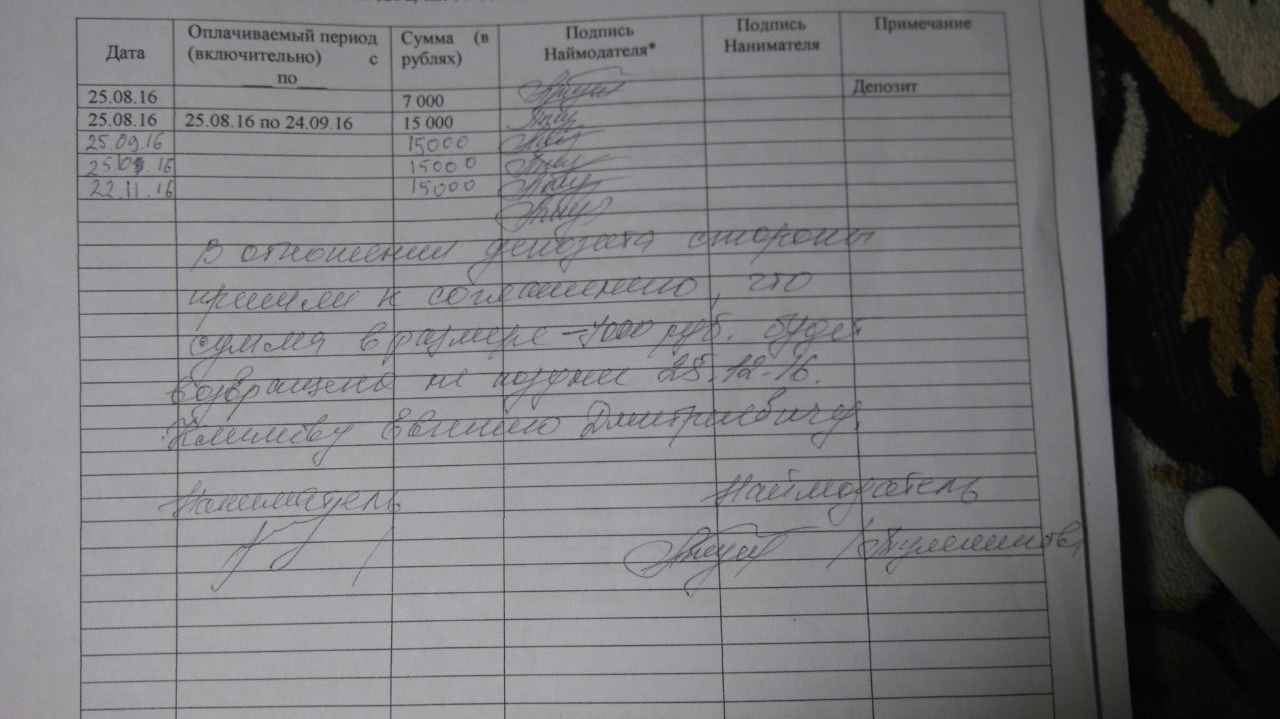 Дата Оплачиваемый период (включительно) с ___ по ___ Сумма (в рублях) Подпись Наймодателя* Подпись Нанимателя Примечание
25.08.16 7 000 Депозит
25.08.16 25.08.16 по 24.09.16 15 000
25.09.16 15000
15000
22.11.16 15000
В отношении депозита стороны
пришли к соглашению, что
сумма в размере 7000 руб. будет
возвращена не позднее 25.12.16.
Евгению Дмитриевичу.
Наниматель Наймодатель